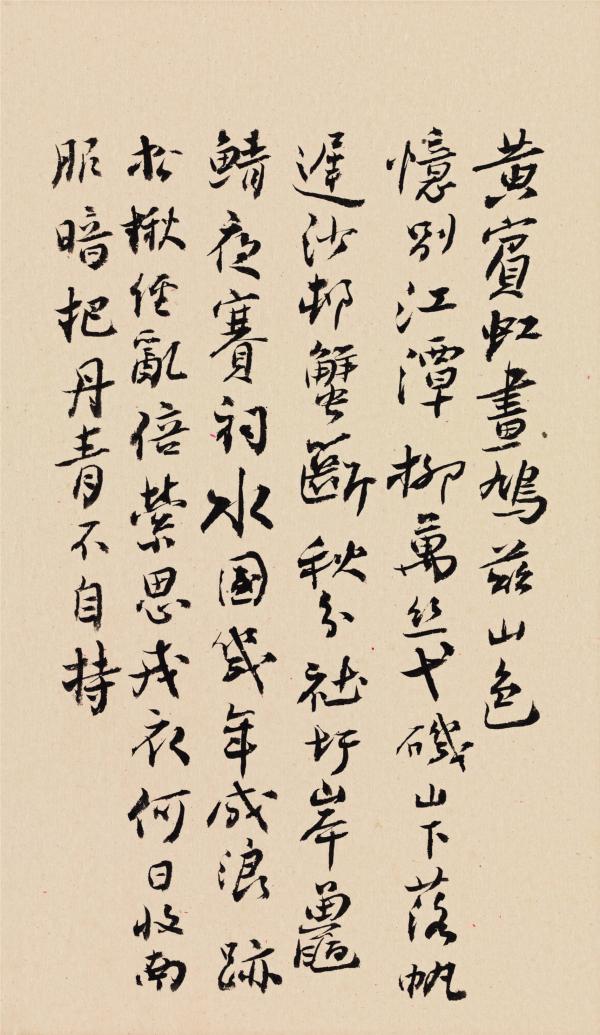 黄賓虹畫鳩茲山色
憶別江潭柳萬丝弋磯山下落帆
遲沙邨蟹籪秋分社圩岸鼉
鯖夜賽祠水國幾年成浪跡
松楸經亂倍縈思戎衣何日收南
服暗把丹青不自持